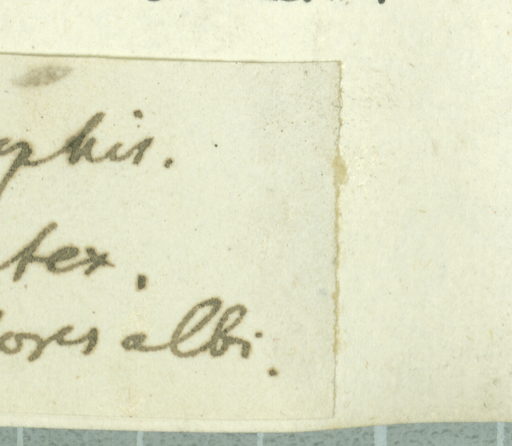 phis.
tex.
lores albi.